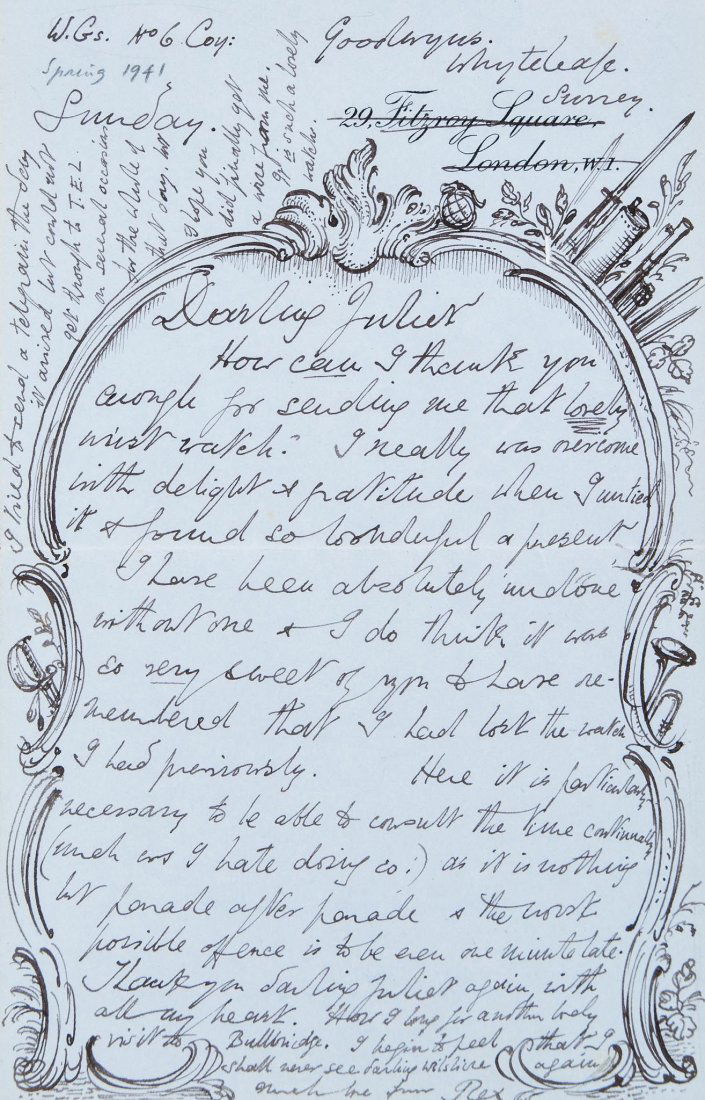 W.Gs. No 6 Coy:
Spring 1941
Sunday.
Goodwyns.
Whyteleafe.
Surrey.
29, Fitzroy Square,
London, W.1.
Darling Juliet
How can I thank you
enough for sending me that lovely
wrist watch. I really was overcome
with delight & gratitude when I untied
it & found so wonderful a present
I have been absolutely undone
without one & I do think it was
so very sweet of you to have re-
membered that I had lost the watch
I had previously. Here it is particularly
necessary to be able to consult the time continually
(much as I hate doing so!) as it is nothing
but parade after parade & the worst
possible offence is to be even one minute late.
Thank you darling Juliet again with
all my heart. How I long for another lovely
visit to Bulbridge. I begin to feel that I
shall never see darling Wilshire again
Much love from Rex
I tried to send a telegram the day
it arrived but could not
get through to T.E.L.
on several occasions
for the whole of
that day, but
I hope you
did finally get
a wire from me.
It is such a lovely
watch.